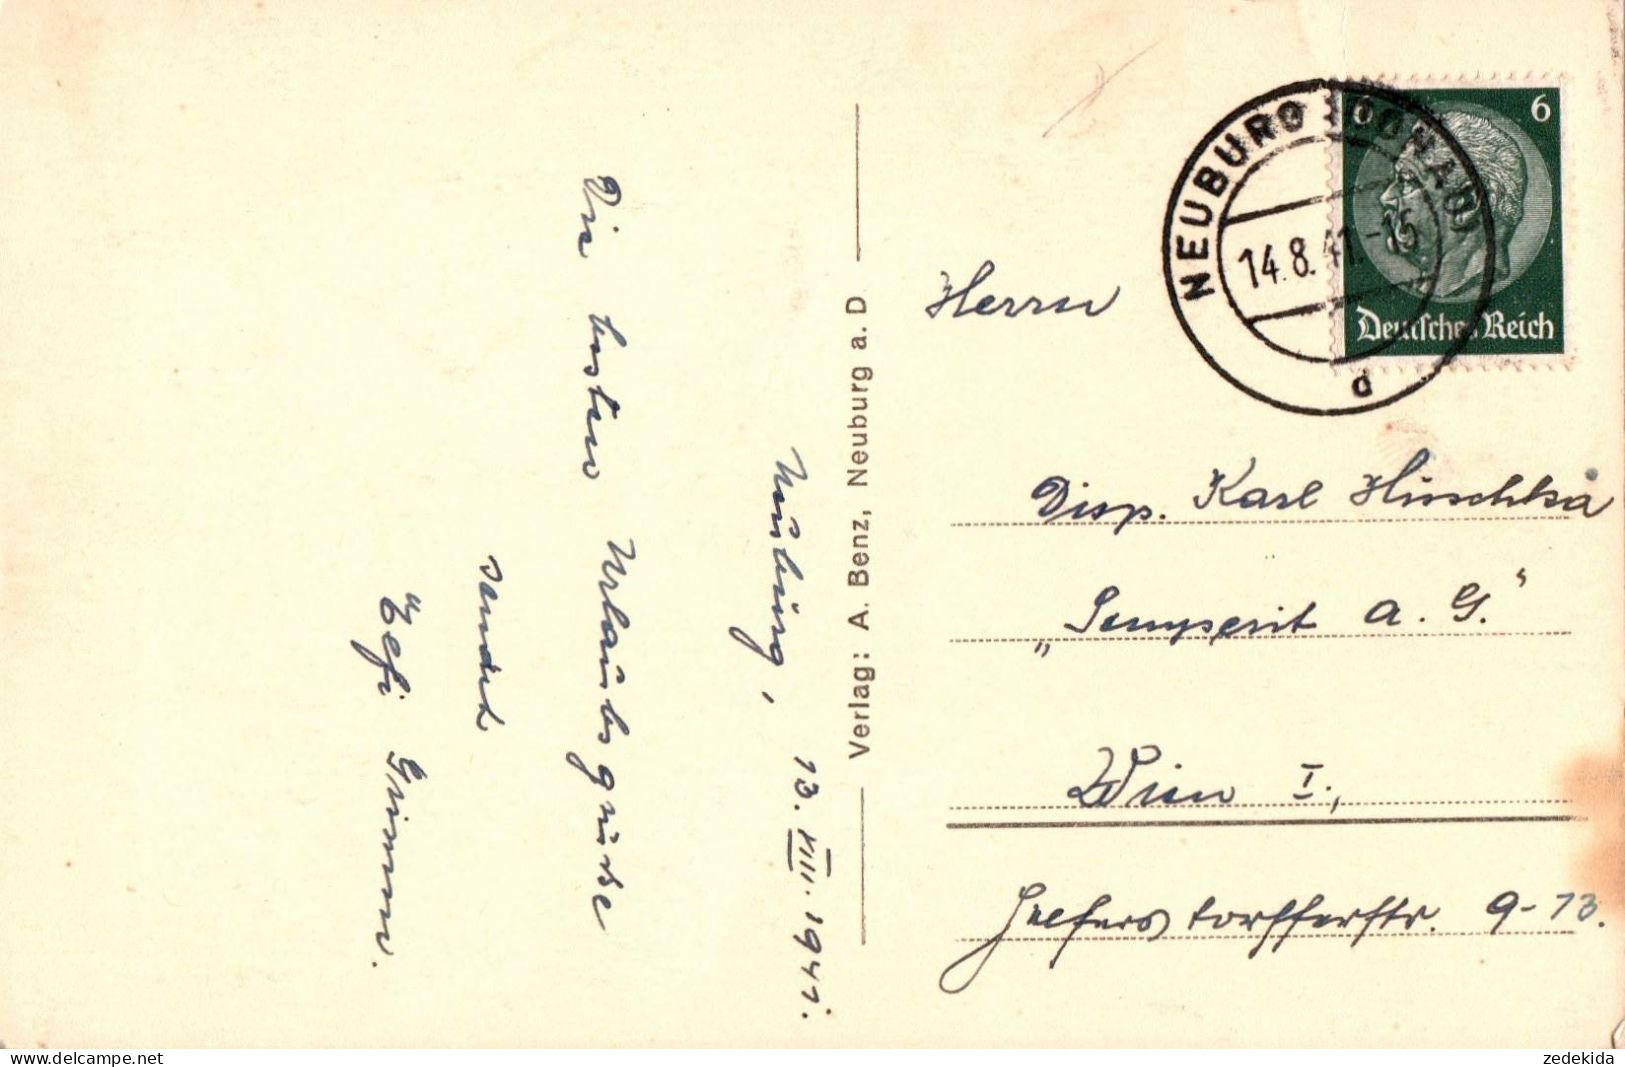 Neuburg, 13. VIII. 1941.
Die besten Urlaubsgrüsse
sendet
Grimm.
Verlag: A. Benz, Neuburg a. D
NEUBURG (DONAU)
14.8.41.-15
d
6 6
Deutsches Reich
Herrn
Disp. Karl Huschka
„Semperit A. G."
Wien I.,
Helferstorfferstr. 9-13.
www.delcampe.net
zedekida